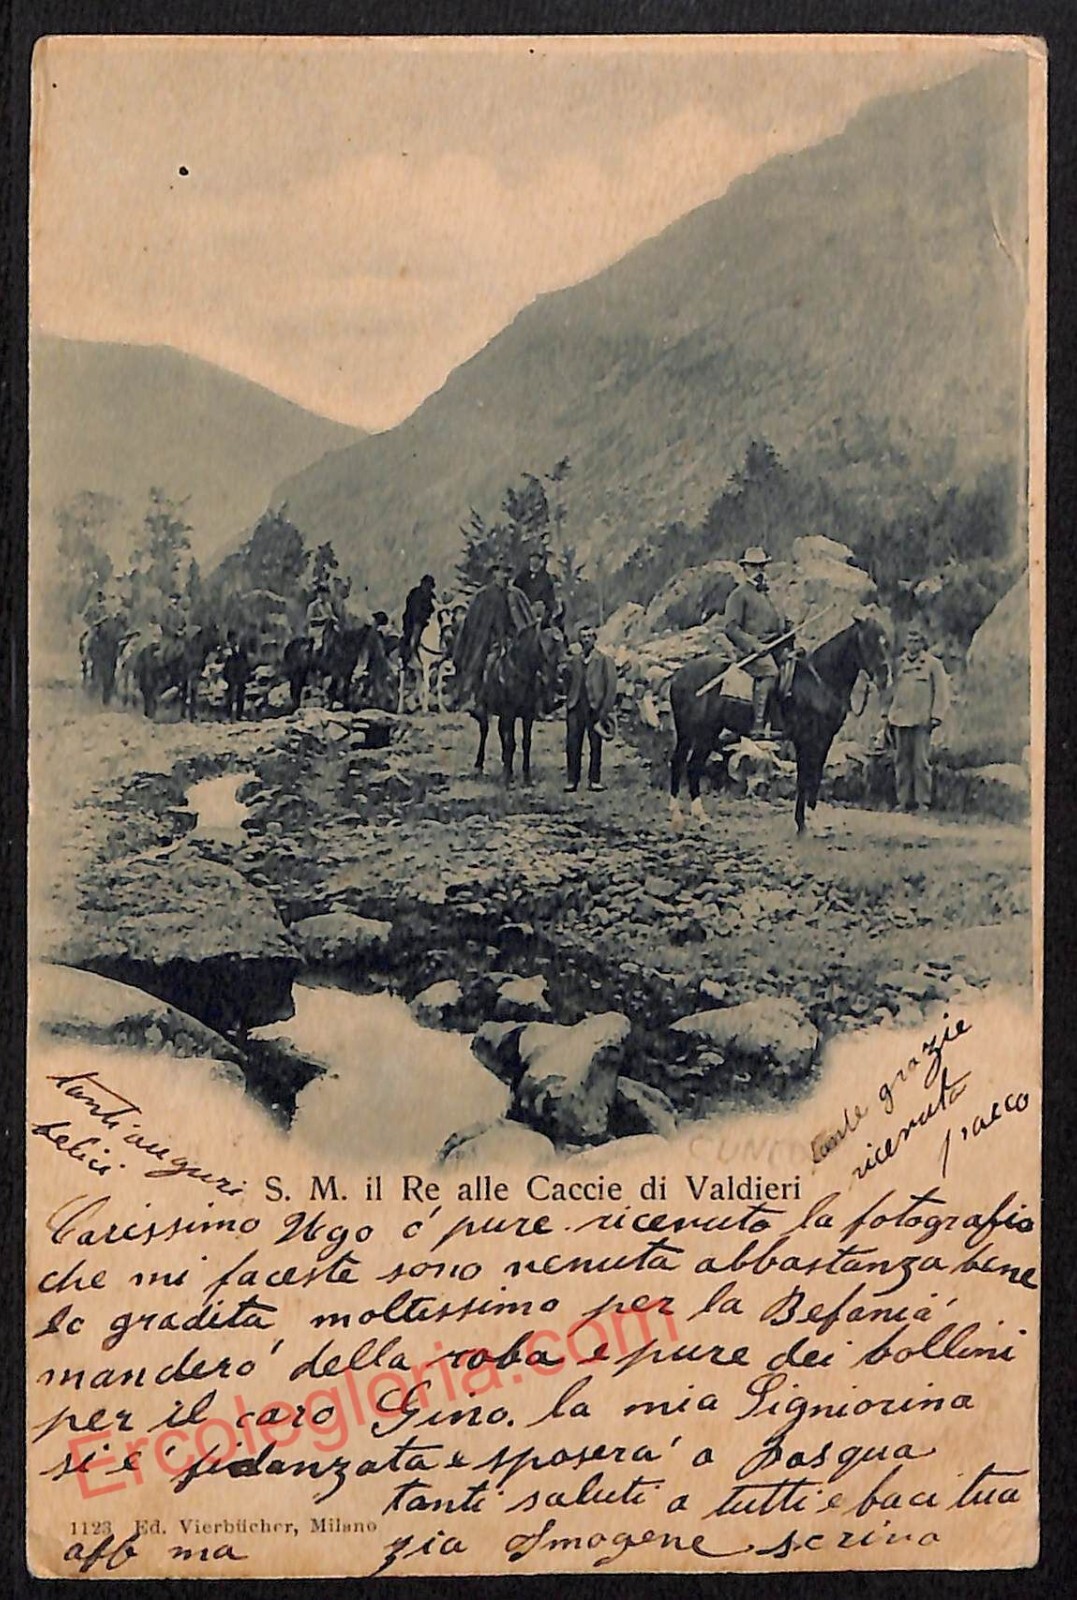 tanti auguri
felici
tante grazie
ricevuta
pacco
S. M. il Re alle Caccie di Valdieri
Carissimo Ugo ó pure ricevuto la fotografia
che mi faceste sono venuta abbastanza bene
lo gradita moltissimo per la Befaniá
manderó della roba e pure dei bollini
per il caro Gino. la mia Signiorina
si é fidanzata e sposerá a Pasqua
tanti saluti a tutti e baci tua
1123 Ed. Vierbücher, Milano
aff ma zia Imogene scrivo
Ercolegloria.com